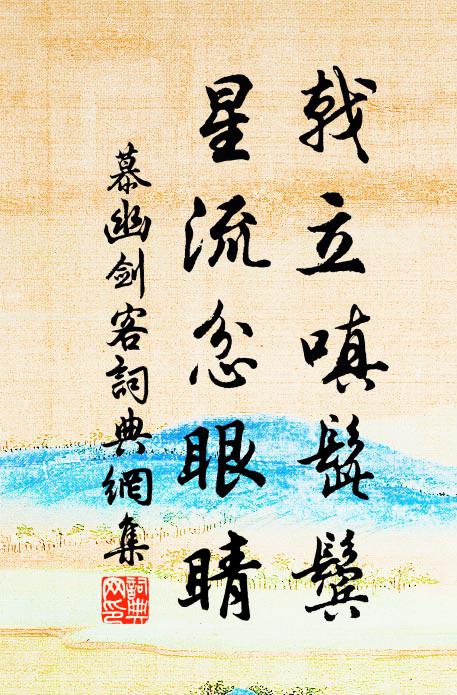 戟立嗔髭鬓
星流忿眼睛
慕幽劍客詞典網集
詞典